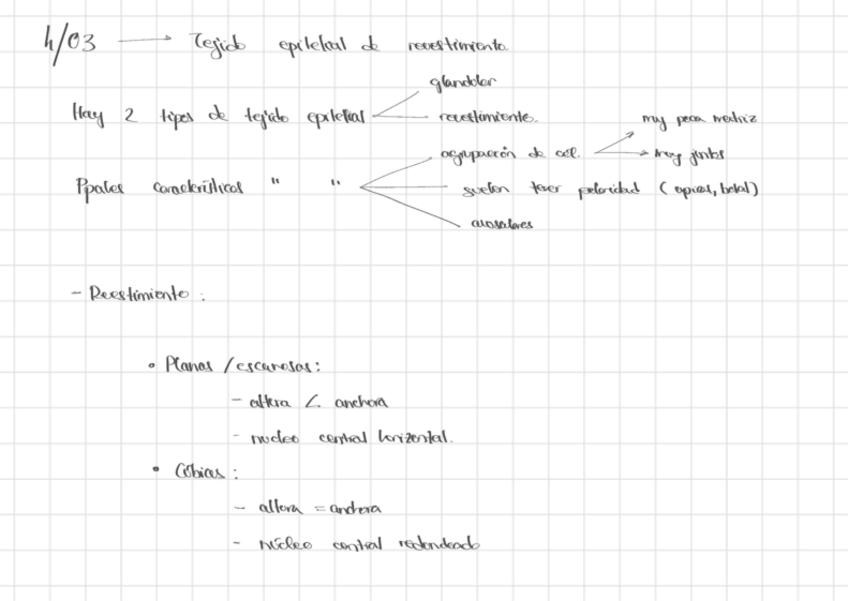 4/03 → Tejido epitelial de revestimiento
glandular
Hay 2 tipos de tejido epitelial
revestimiento.
muy poca matriz
agrupación de cel.
muy juntas
Ppales características " "
suelen tener polaridad (apical, basal)
avasculares
- Reestimiento:
• Planas / escamosas:
- altura < anchura
- nucleo central horizontal.
• Cúbicas:
- altura = anchura
- núcleo central redondeado